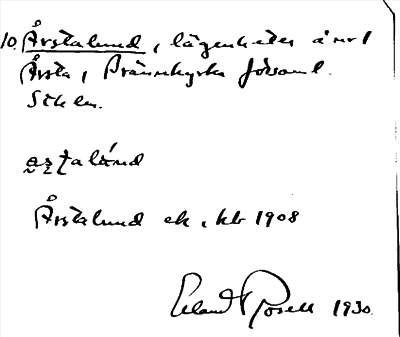 10. Årstalund, lägenheter å nr 1
Årsta, Brännkyrka förs.
Sthlm.
Årstalund ek, kb 1908
Erland Rosell 1930.